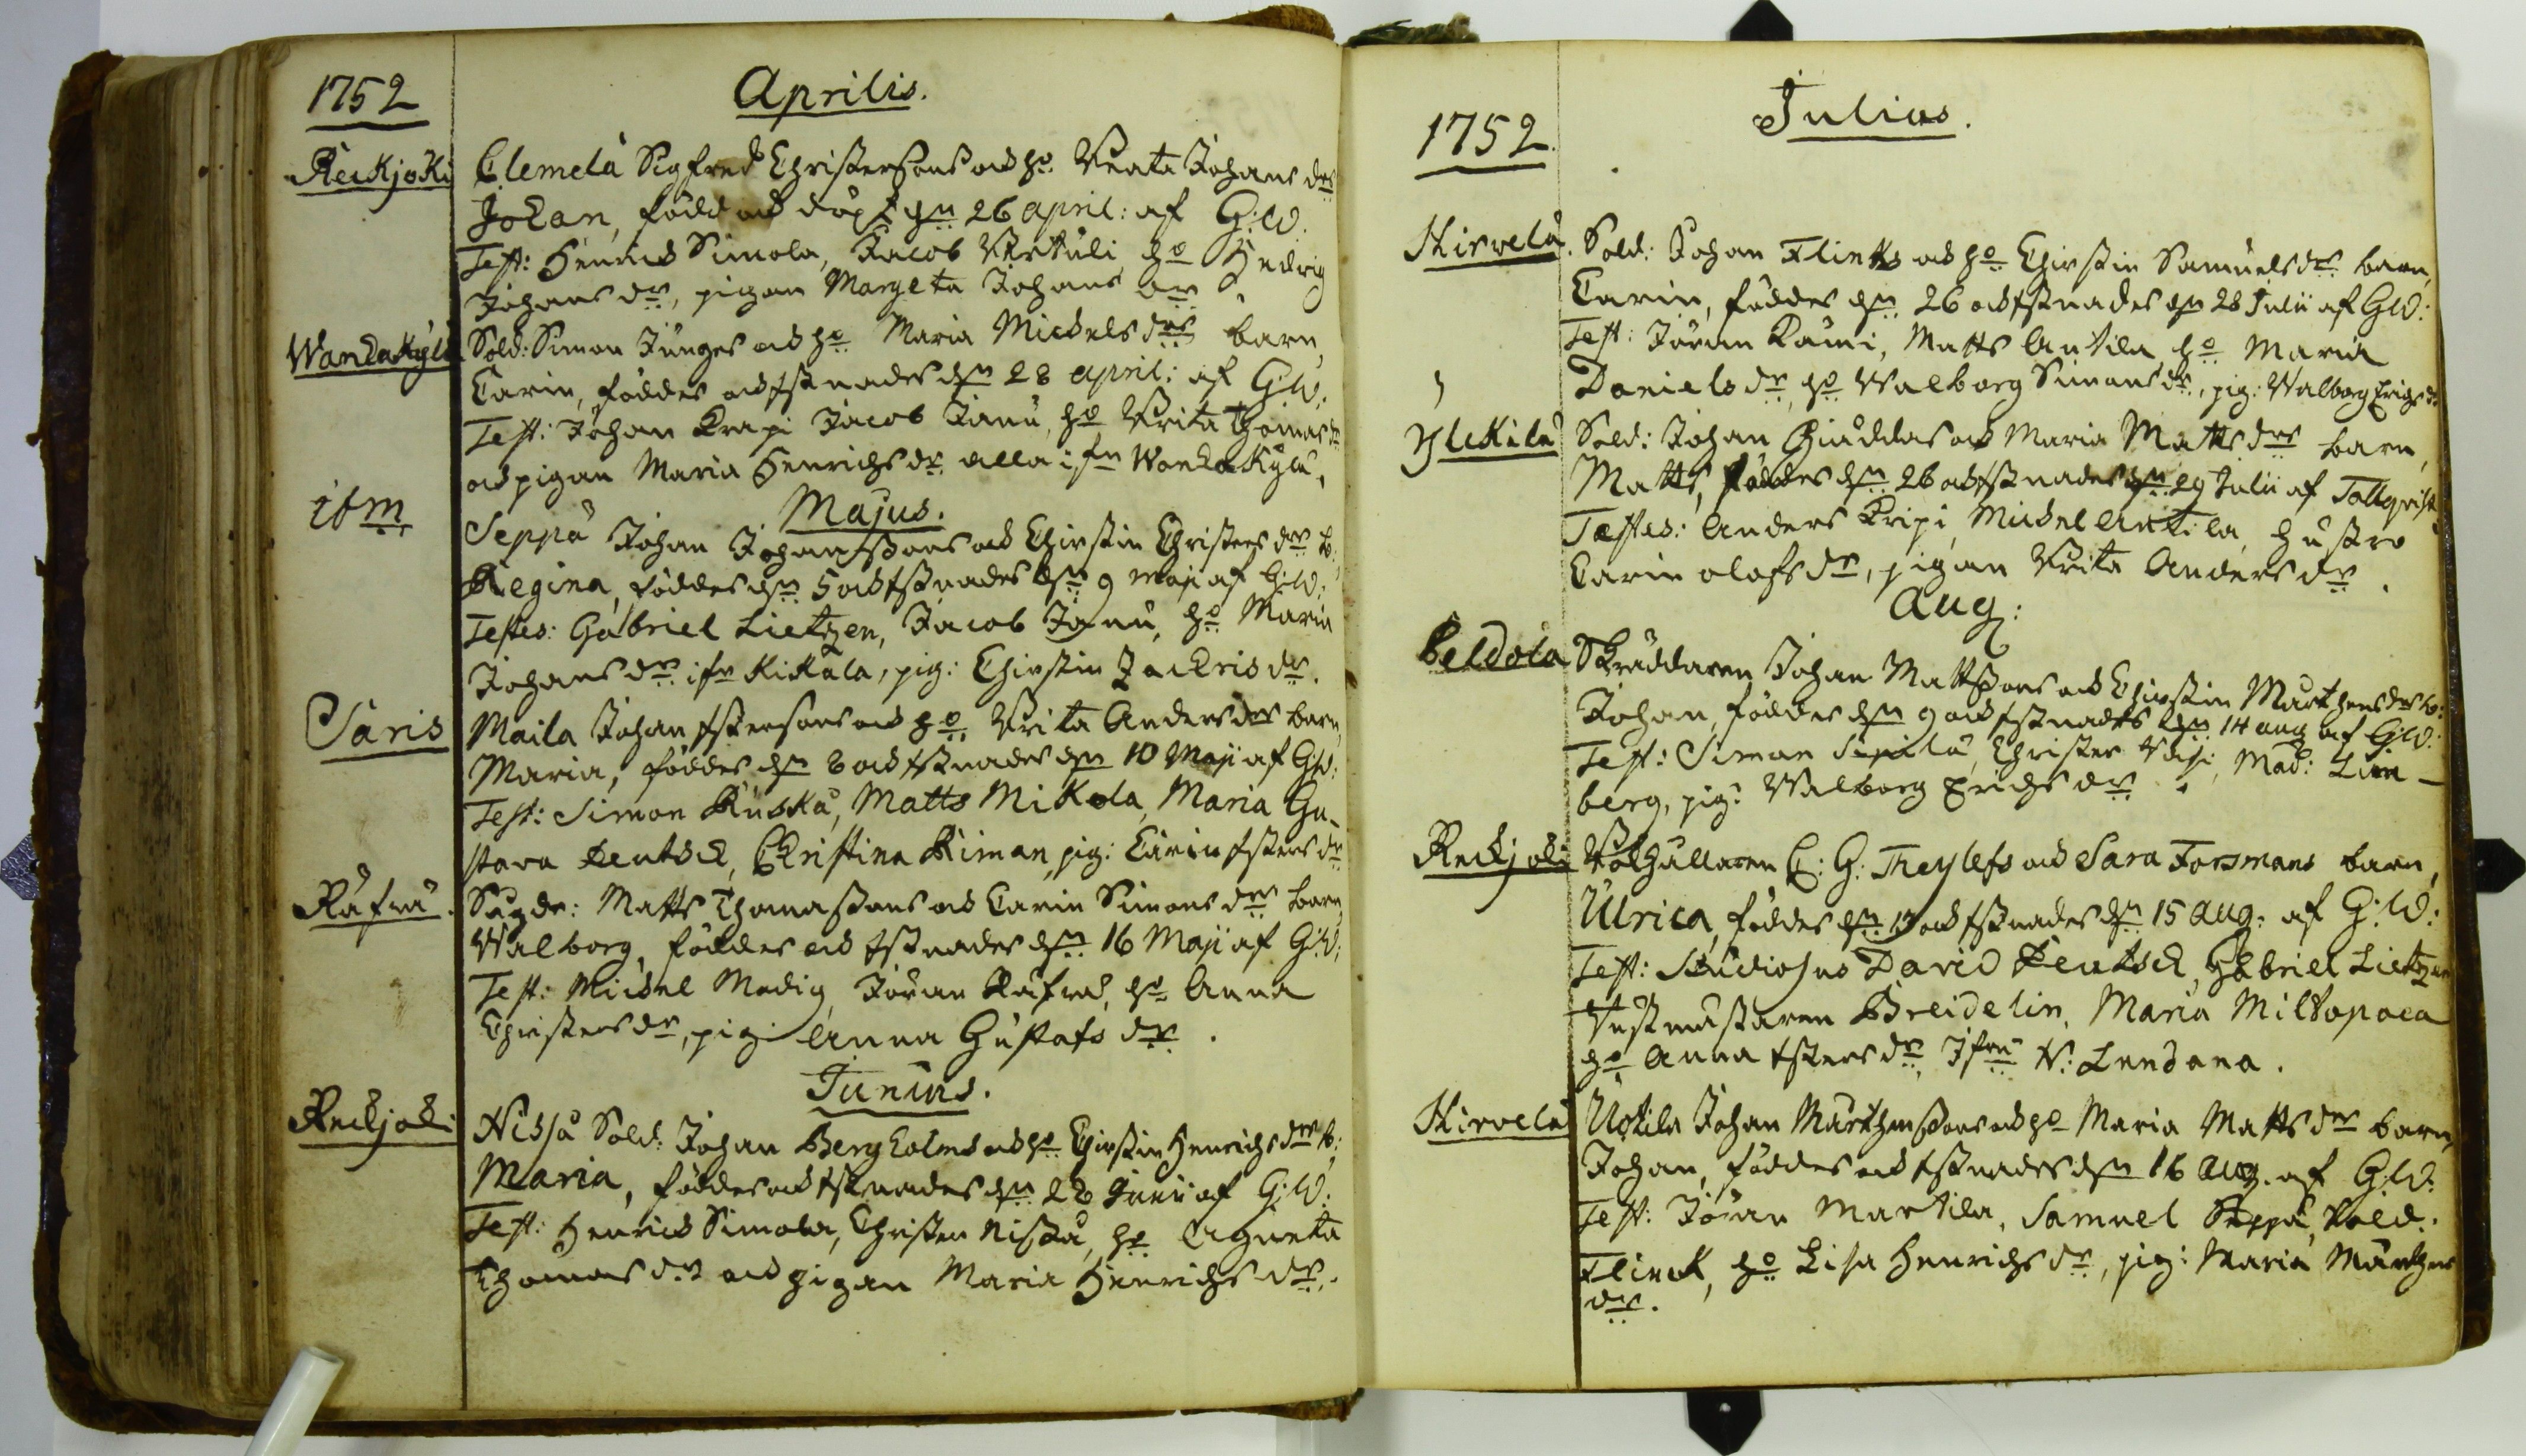 1752
Aprilis.
Reckjoki
Clemelä Sigfred Christersons och ho Beata Johans dr
Johan, född och döpt dn 26 april: af G:W.
Test: Henrich Simola, Jacob Bertuli ho Hedvig
Johans dr, pigan Margeta Johans dr
Wanhakylä
Sold: Simon Junges och ho Maria Michels drs barn,
Carin, föddes och Xstnades dn 28 april: af G:W:
Test: Johan Krapi Jacob Janu, ho Brita Thomas dr
och pigan Maria Henrichs dr alla ifrn Wanhakylä,
ibm
Majus.
Seppä Johan Johanssons och Chirstin Christers drs b:
Regina, föddes dn 5 och Xstnades dn 9 maji af G:W:
Testes: Gabriel Lietzen, Jacob Janu, ho Maria
Johans dr ifr Kikala, pig: Chirstin Zachris dr.
Säris
Maila Johan Xstersons och ho Brita Anders drs barn,
Maria, föddes dn 8 och Xstnades dn 10 Maji af G:W:
Test: Simon Ruska, Matts Mikola, Maria Gu-
stava Deutsch, Christina Riman, pig: Carin Xsters dr
Räfvä.
Matts Thomassons och Carin Simons drs barn,
Walborg, föddes och Xstnades dn 16 Maji af G:W:
Test: Michel Modig, Jöran Räfvä, ho Anna
Christers dr, pig: Anna Gustafs dr.
Junius.
Reckjoki
Sold: Johan Bergholms och ho Chirstin Henrichs drs b:
Maria, föddes och Xstnades dn 28 Junii af G:W:
Test: Henrich Simola, Christer Niska, ho Agneta
Thomas dr och pigan Maria Henrichs dr.
1752.
Julius.
Hirvelä.
Sold: Johan Flinks och ho Chirstin Samuels drs barn,
Carin, föddes dn 26 och Xstnades dn 28 Julii af G:W:
Test: Jöran Rämi, Matts Antila ho Maria
Daniels dr, ho Walborg Simons dr, pig: Walborg Erichs dr
Ylikilä
Sold: Johan och Maria Matts drs barn,
Matts, föddes dn 26 och Xstnades dn 29 Julii af Tallqvist
Testes: Anders Kripi, Michel Antila, hustro
Carin Olofs dr, pigan Brita Anders dr.
Aug:
Celdola
Skräddaren Johan Mattssons och Chirstin Mårthens drs b:
Johan, föddes dn 9 och Xstnades dn 14 aug af G:W:
Test: Simon Sipilä, Christer Mad: Lim-
berg, pig: Walborg Erichs dr.
Reckjoki
Bokhållaren C: G: Theylefs och Sara Forsmans barn,
Ulrica, föddes dn 13 och Xstnades dn 15 aug: af G:W:
Test: Studiosus David Deutsch, Gabriel Lietzen
Breidelin, Maria Miltopaea
ho Anna Xsters dr, Jfru N: Lundana.
Hirvelä
Uotila Johan Mårthenssons och ho Maria Matts drs barn,
Johan, föddes och Xstnades dn 16 Aug. af G:W:
Test: Jöran Martila, Samuel Seppä, Sold:
Flinck, ho Lisa Henrichs dr, pig: Maria Mårthens
dr.